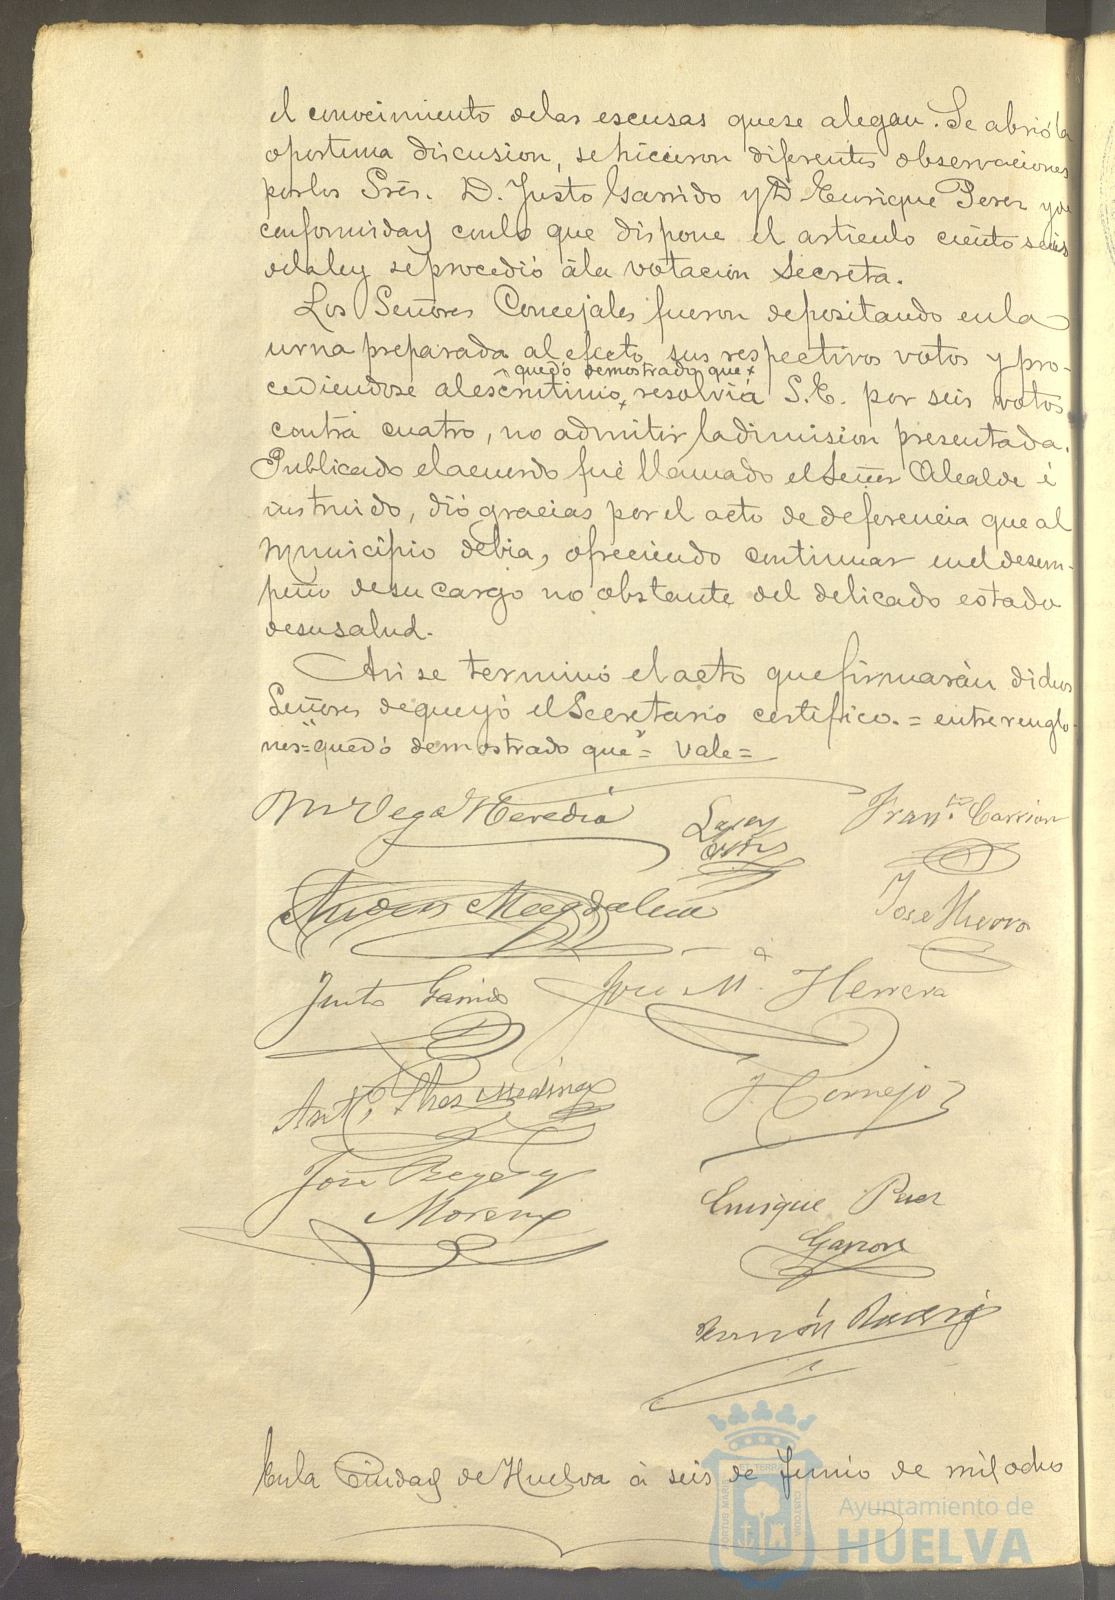 el conocimiento delas escusas quese alegan. Se abrió la
oportuna discusion, sehicieron diferentes observaciones
porlos Srēs. D. Justo Garrido y D. Enrique Perez y de
conformidad conlo que dispone el articulo ciento seis
delaley seprocedió ála votacion secreta.
Los Señores Concejales fueron depositando enla
urna preparada al efecto sus respectivos votos y pro-
quedó demostrado que
cediendose alescrutinio, resolvía S.E. por seis votos
contra cuatro, no admitir ladimision presentada.
Publicado elacuerdo fué llamado elSeñor Alcalde é
instruido, dió gracias por el acto de deferencia que al
Municipio debia, ofreciendo continuar enel desem-
peño desu cargo no obstante del delicado estado
desusalud.
Asi se terminó el acto que firmarán dichos
Señores dequeyó el Secretario certifico.= entrerenglo-
nes="quedó demostrado que"= Vale=
M Vega Heredia
Franco. Carrion
Magdalena
Jose Hierro
Justo Garrido
José M.a Herrera
Ant.o Medina
J. Cornejo
José
Moreno
Enrique Perez
Ramón
Enla Ciudad de Huelva á seis de Junio de mil ocho
PORTUS MARIS ET TERRAE CUSTODIA
Ayuntamiento de
HUELVA